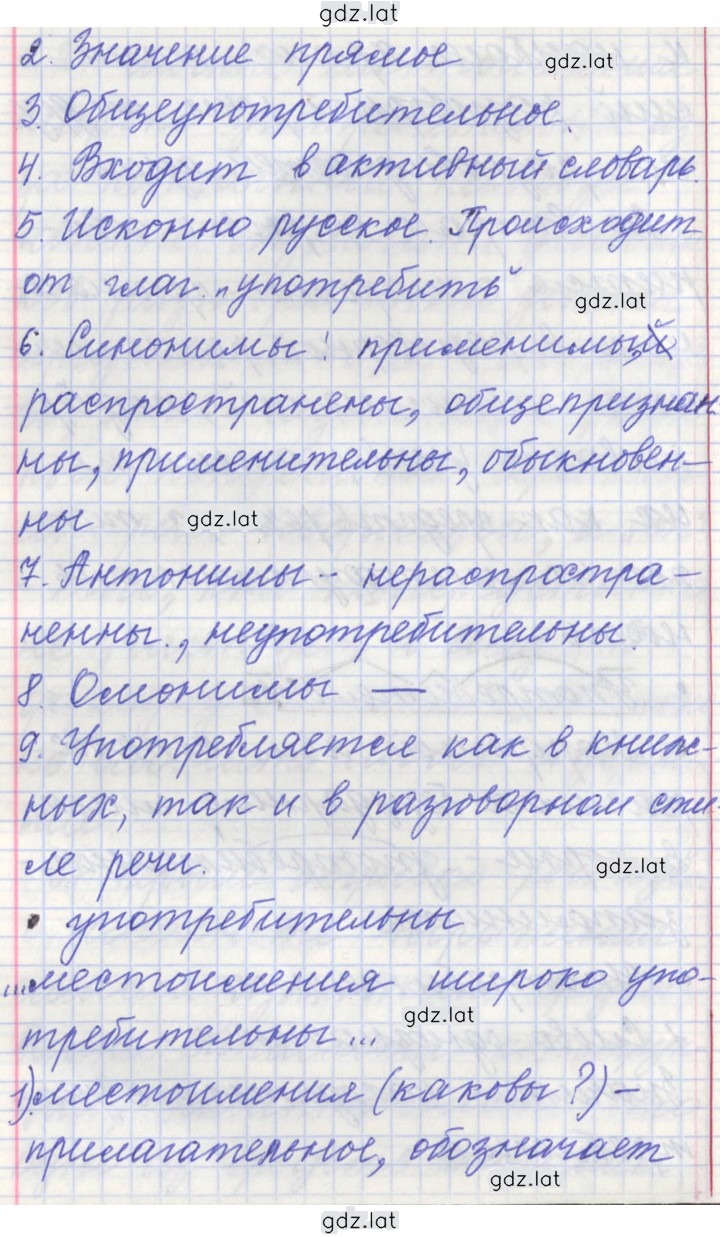 gdz.lat
2. Значение прямое gdz.lat
3. Общеупотребительное.
4. Входит в активный словарь.
5. Исконно русское. Происходит
от глаг. „употребить"
gdz.lat
6. Синонимы: применимы,
распространены, общепризнан-
ны, применительны, обыкновен-
ны gdz.lat
7. Антонимы - нераспростра-
ненны., неупотребительны.
8. Омонимы —
9. Употребляется как в книж-
ных, так и в разговорном сти-
ле речи. gdz.lat
• употребительны
...местоимения широко упо-
требительны... gdz.lat
1) местоимения (каковы?) -
прилагательное, обозначает
gdz.lat
gdz.lat